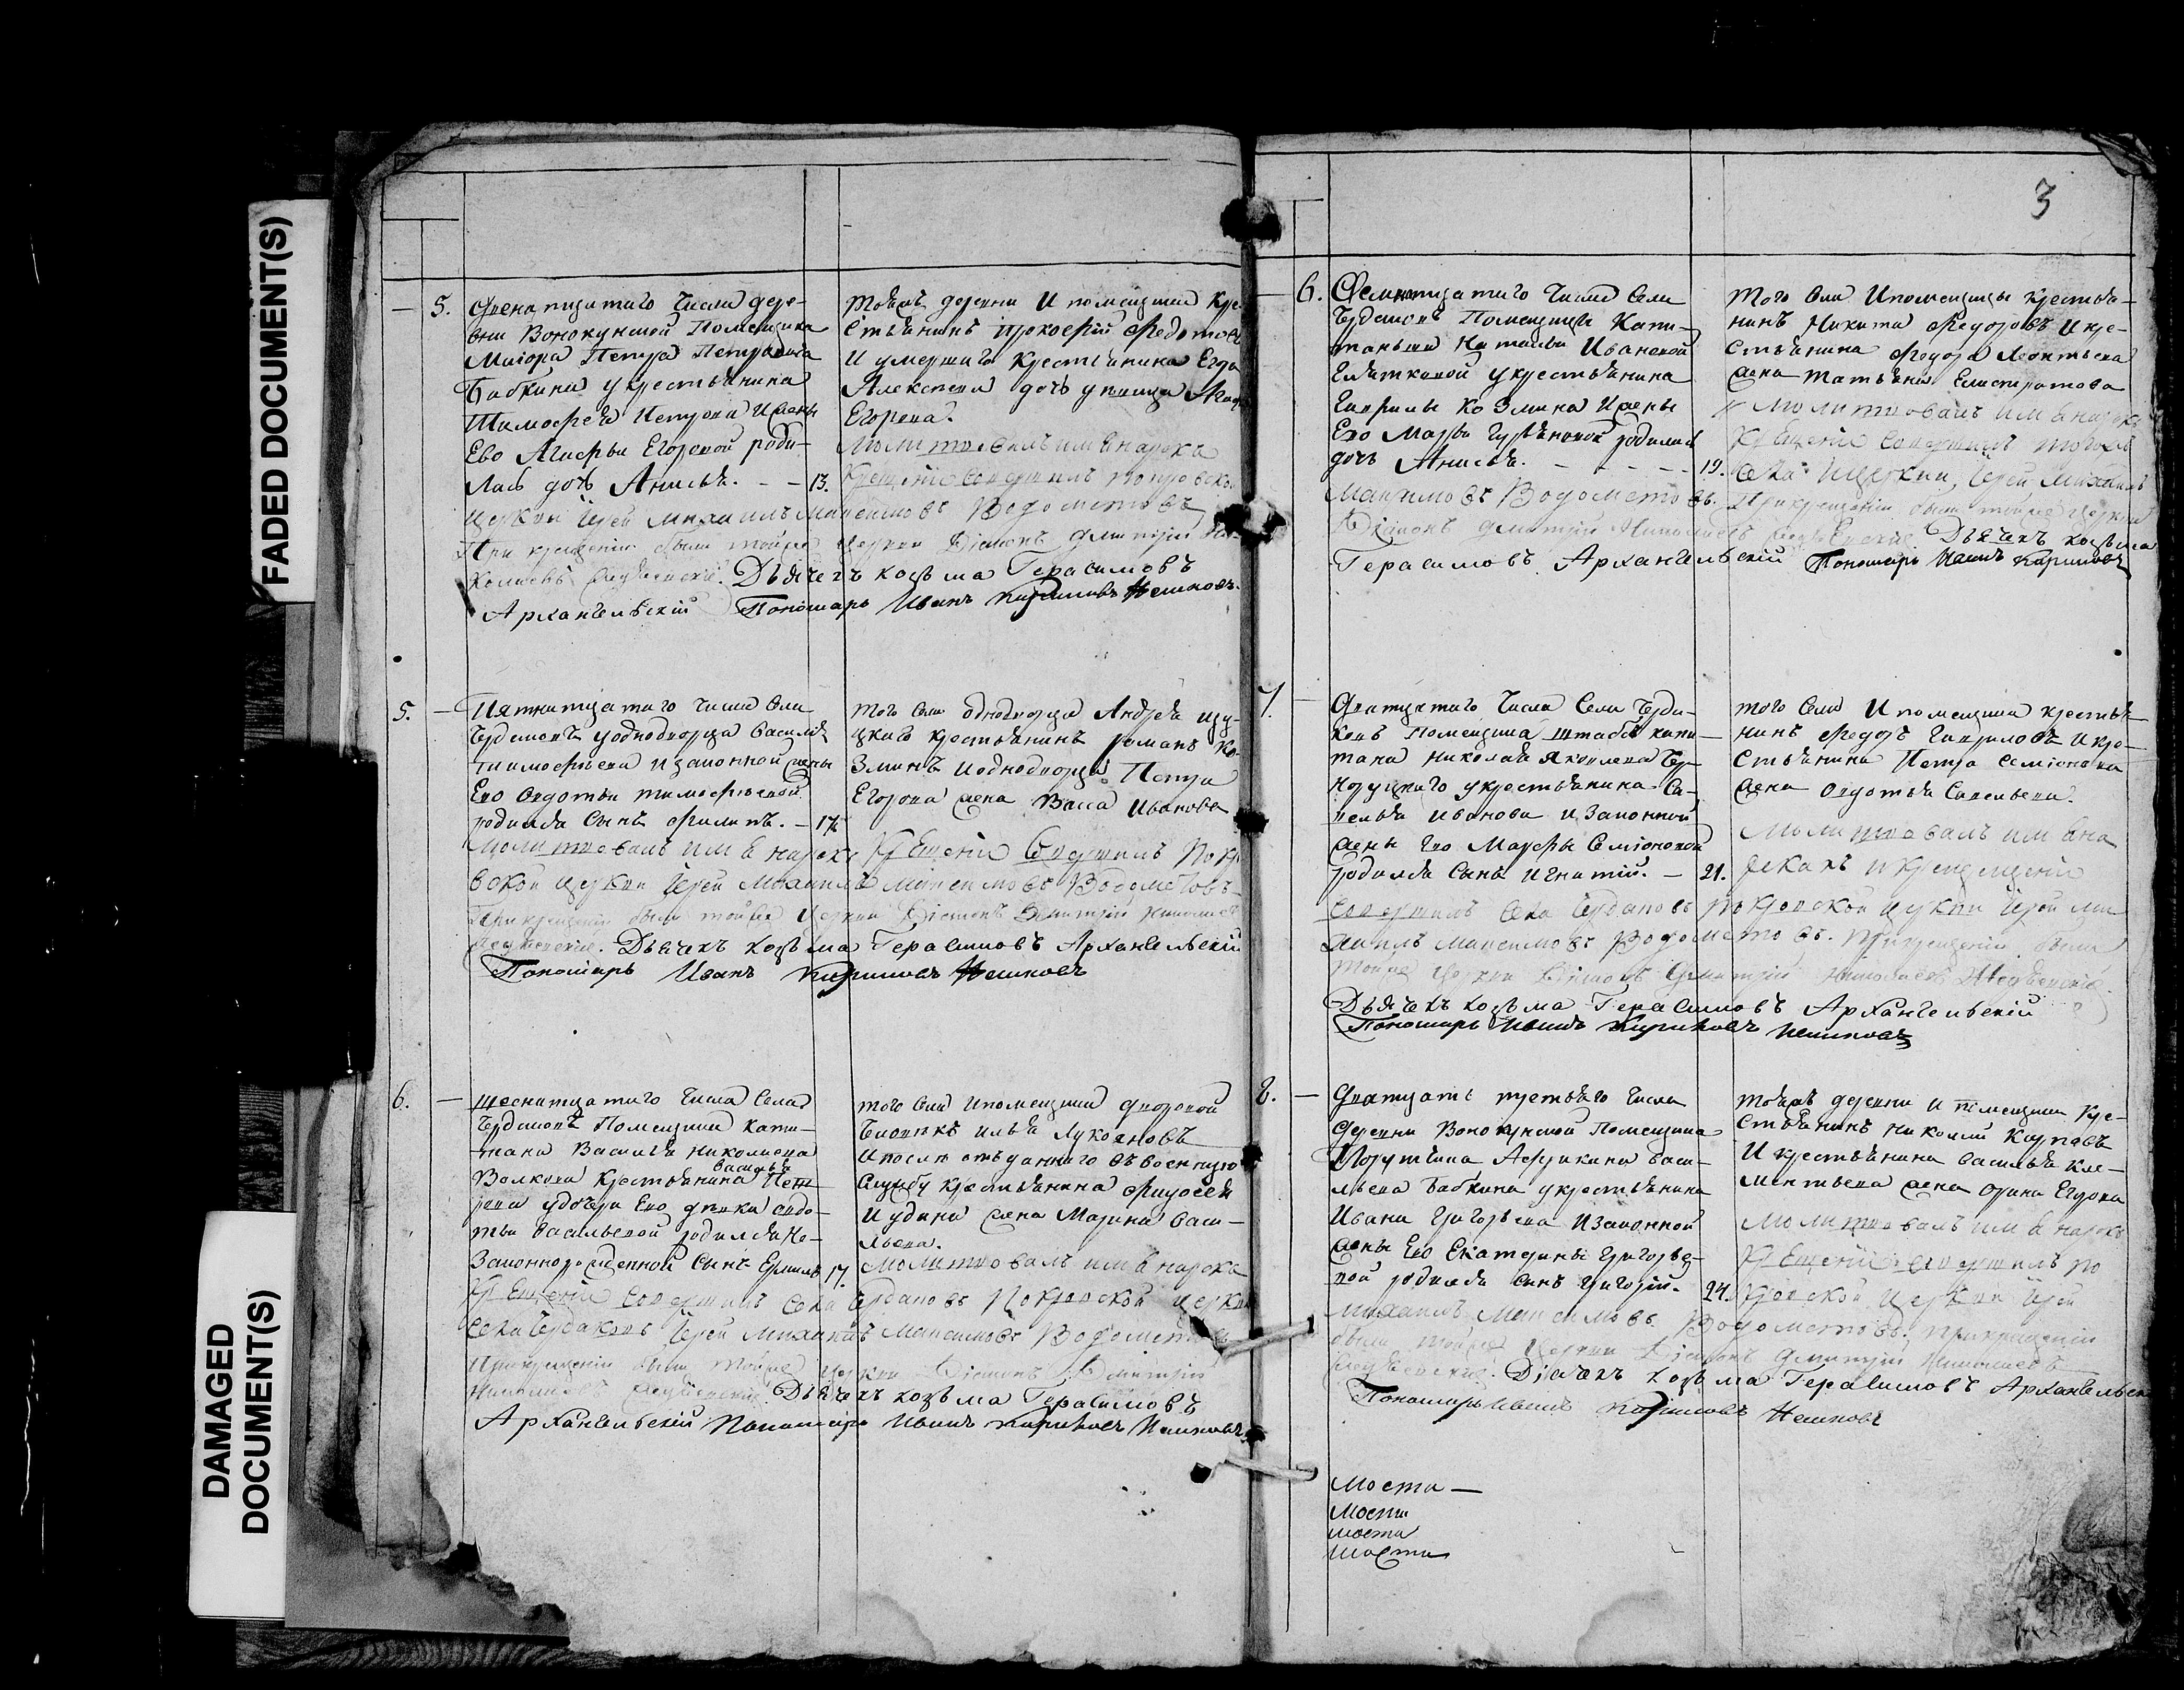 FADED DOCUMENT(S)
DAMAGED
DOCUMENT(S)
3
5. Двенатцатаго Числа дере-
вни Помещика
Маиора Петра Петровича
Бабкина укрестьянина
Тимофея Петрова Ижены
Ево Агафьи Егоровой роди-
лась дочь Анисья. - - 13.
тояжъ деревни Ипомещика Кре-
стьянинъ Прокофий Федотовъ
И умершаго Крестьянина Егора
Алексеева дочь девица
Егорова.
Молитвовалъ имя нарекъ
Крещение Совершилъ покровской
церкви Иерей Михаилъ Максимовъ Водометовъ
При крещении были тойже церкви Диаконъ Дмитрий Ни-
колаевъ Дьячекъ козьма Герасимовъ
Архангельский Пономарь Иванъ Кириловъ
5. Пятнатцатаго числа Села
уоднодворца Василия
тимофеева изаконной жены
Ево Овдотьи тимофеевой
родился Сынъ Филипъ. - 17.
того села однодворца Андрея
крестьянинъ романъ Ко-
зминъ иоднодворца Петра
Егорова жена Васса Иванова
Молитвовалъ имя нарекъ Крещение Совершилъ Покр-
вской церкви Иерей Михаилъ Максимовъ Водометовъ
При крещении были тойже церкви Диаконъ Димитрий Николаевъ
Дьячекъ козьма Герасимовъ Архангельский
Пономарь Иванъ Кириловъ
6. Шеснатцатаго Числа Села
Помещика Капи-
тана Василья Николаева
Волкова Крестьянина Васильи Пет-
рова удочери Ево девки овдо-
тьи васильевой родился Не-
Законнорожденной Сынъ Ермилъ 17.
того села Ипомещика дворовой
человекъ илья Лукояновъ
Ипосле отъданнаго въвоенную
Службу крестьянина Федосея
Иудина жена Марина Васи-
льева.
Молитвовалъ имя нарекъ
Крещение Совершилъ Села Покровской церкви
Иерей Михаилъ Максимовъ Водометовъ
Прикрещении были тойже церкви Диаконъ Димитрий
Николаевъ Дьячекъ козьма Герасимовъ
Архангельский Пономарь Иванъ Кириловъ
6. Семнатцатаго Числа Села
Помещицы Капи-
танши Натальи Ивановой
укрестьянина
Гаврилы Козмина Ижены
Ево Марьи Гурьяновой родилась
дочь Анисья. - - - - - 19.
Того села Ипомещицы крестья-
нинъ Никита Федоровъ Икре-
стьянина Федора Леонтьева
жена татьяна Елистратова
Молитвовалъ имя нарекъ
Крещение Совершилъ тогожъ
Села Ицеркви, Иерей Михаилъ
Максимовъ Водометовъ. При крещении были тойже церкви
Диаконъ Дмитрий Николаевъ Дьячекъ козьма
Герасимовъ Архангельский Пономарь Иванъ Кириловъ
7. Дватцатаго Числа Села
Помещика штабсъ капи-
тана Николая Яковлева
укрестьянина Са-
велья Иванова иЗаконной
жены Ево Мавры Семионовой
родился Сынъ Игнатий. - 21.
того Села Ипомещика крестья-
нинъ Федоръ Гавриловъ Икре-
стьянина Петра Семионова
жена Овдотья Савельева.
Молитвовалъ имя на
рекахъ икрещении
совершилъ села покровской церкви Иерей Ми-
хаилъ Максимовъ Водометовъ. Прикрещении были
тойже церкви Диаконъ Дмитрий Николаевъ
Дьячекъ козьма Герасимовъ Архангельский
Пономарь Иванъ Кириловъ
8. Дватцать третьяго Числа
Деревни Помещика
Порутчика Васи-
льева Бабкина укрестьянина
Ивана Григорьева Изаконной
жены Ево Екатерины Григорье-
вой родился сынъ Григорий. 24.
тояжъ деревни и помещика Кре-
стьянинъ Николай Карповъ
И крестьянина Василья Кле-
ментьева жена орина Егорова
Молитвовалъ имя нарекъ
Крещении совершилъ по
кровской церкви Иерей
Михаилъ Максимовъ Водометовъ. Прикрещении
были тойже церкви Диаконъ Дмитрий Николаевъ
Диачекъ козьма Герасимовъ Архангельск
Пономарь Иванъ Кириловъ
моста —
моста
моста
моста